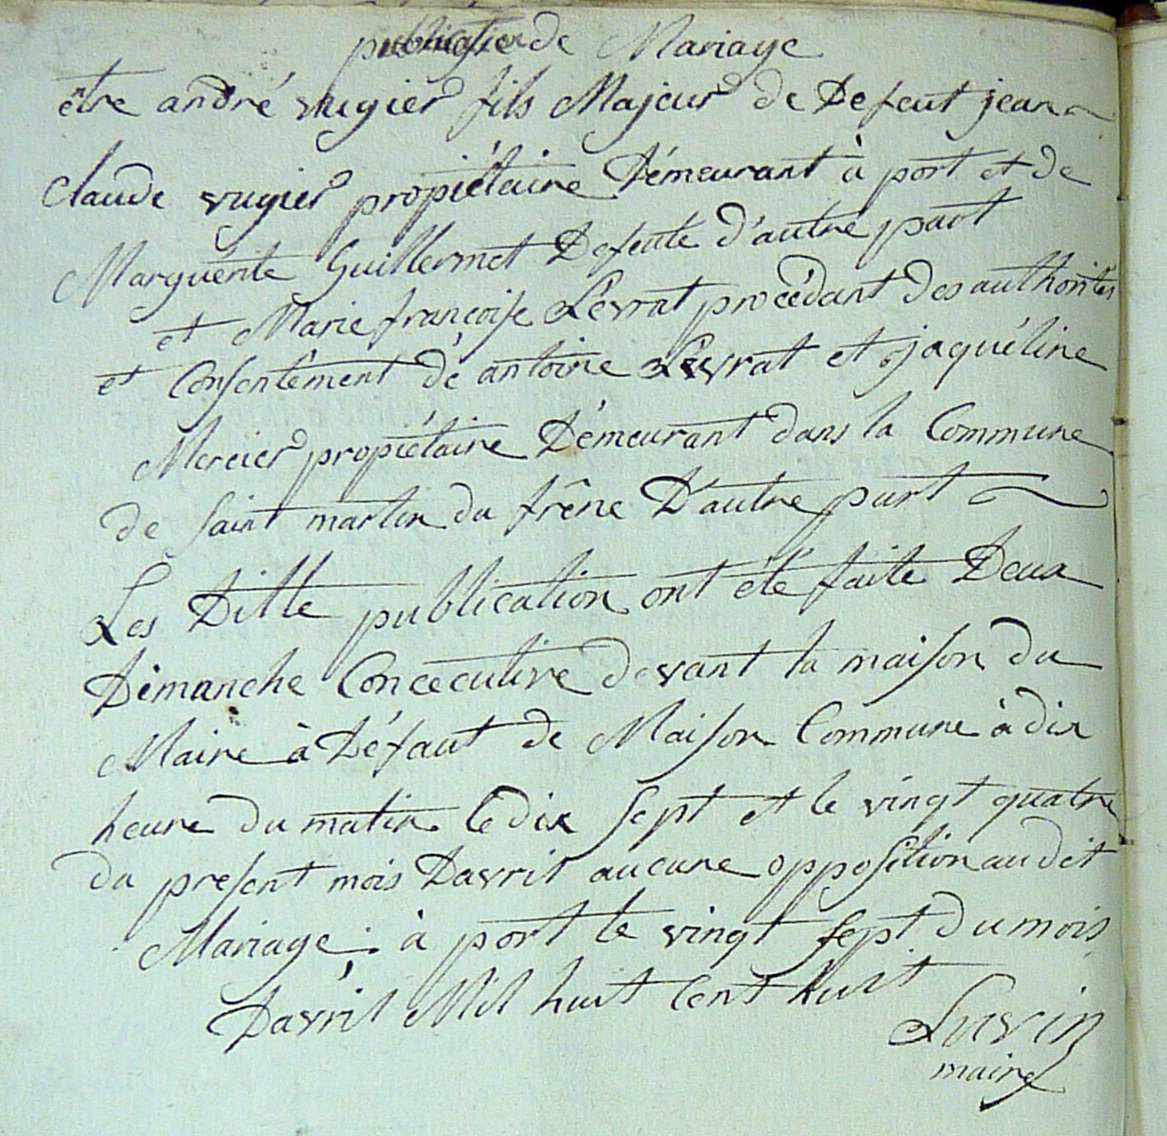 publication de Mariage
être andré vugier fils Majeur de Defeut jean
Claude vugier propiétaire Démeurant à port et de
Marguérite Guillermet Defeute d'autre part
et Marie françoise Lévrat procédant des authorités
et Consentêment dé antoine Lévrat et jaquéline
Mercier propiétaire Démeurant dans la Commune
de saint martin du frêne D'autre part
Les Ditte publication ont été faite Deux
Dimanche Concecutive devant la maison du
Maire à Défaut de Maison Commune à dix
heure du matin le dix sept et le vingt quatre
du present mois Davril aucune opposition audit
Mariage. à port le vingt sept du mois
Davril Mil huit Cent huit
maire